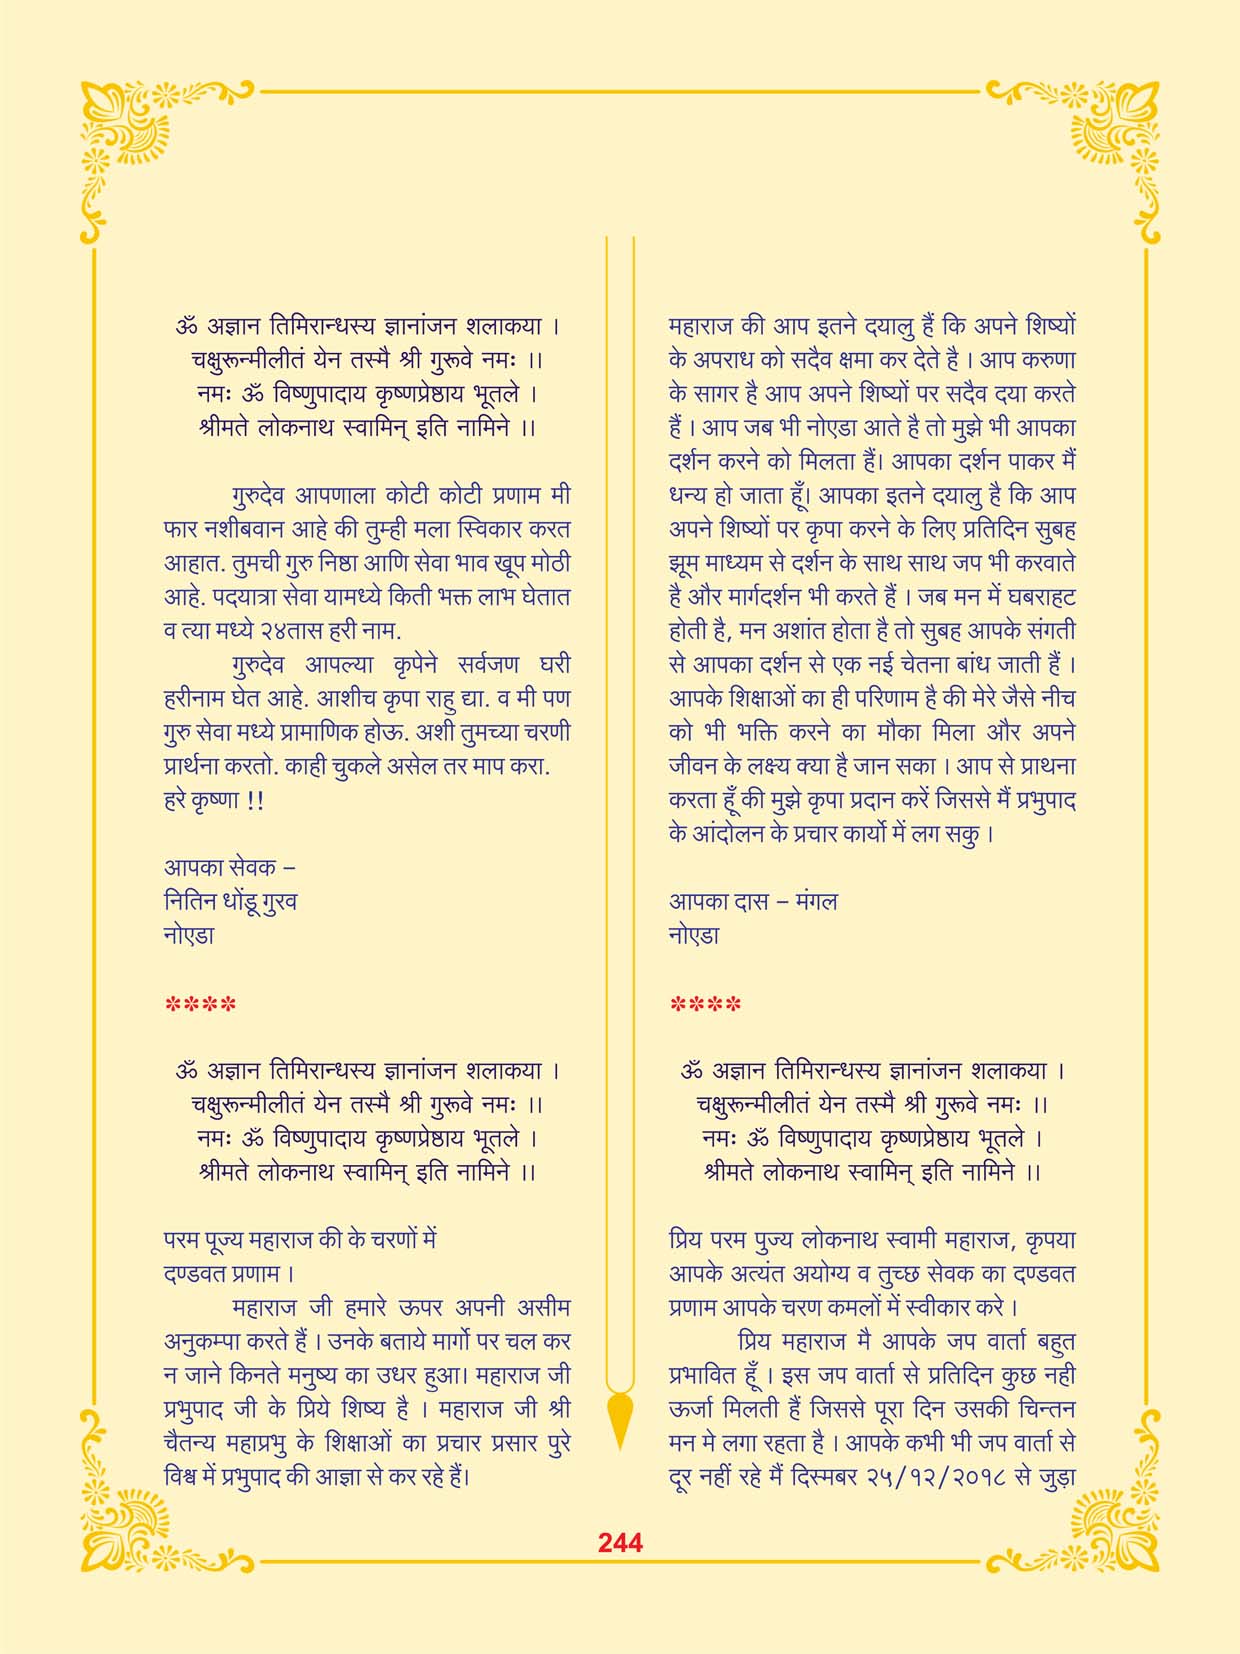 ॐ अज्ञान तिमिरान्धस्य ज्ञानांजन शलाकया ।
चक्षुरून्मीलीतं येन तस्मै श्री गुरूवे नमः ।।
नमः ॐ विष्णुपादाय कृष्णप्रेष्ठाय भूतले ।
श्रीमते लोकनाथ स्वामिन् इति नामिने ।।
गुरुदेव आपणाला कोटी कोटी प्रणाम मी
फार नशीबवान आहे की तुम्ही मला स्विकार करत
आहात. तुमची गुरु निष्ठा आणि सेवा भाव खूप मोठी
आहे. पदयात्रा सेवा यामध्ये किती भक्त लाभ घेतात
व त्या मध्ये २४तास हरी नाम.
गुरुदेव आपल्या कृपेने सर्वजण घरी
हरीनाम घेत आहे. आशीच कृपा राहु द्या. व मी पण
गुरु सेवा मध्ये प्रामाणिक होऊ. अशी तुमच्या चरणी
प्रार्थना करतो. काही चुकले असेल तर माप करा.
हरे कृष्णा !!
आपका सेवक –
नितिन धोंडू गुरव
नोएडा
****
ॐ अज्ञान तिमिरान्धस्य ज्ञानांजन शलाकया ।
चक्षुरून्मीलीतं येन तस्मै श्री गुरूवे नमः ।।
नमः ॐ विष्णुपादाय कृष्णप्रेष्ठाय भूतले ।
श्रीमते लोकनाथ स्वामिन् इति नामिने ।।
परम पूज्य महाराज की के चरणों में
दण्डवत प्रणाम ।
महाराज जी हमारे ऊपर अपनी असीम
अनुकम्पा करते हैं । उनके बताये मार्गो पर चल कर
न जाने किनते मनुष्य का उधर हुआ। महाराज जी
प्रभुपाद जी के प्रिये शिष्य है । महाराज जी श्री
चैतन्य महाप्रभु के शिक्षाओं का प्रचार प्रसार पुरे
विश्व में प्रभुपाद की आज्ञा से कर रहे हैं।
महाराज की आप इतने दयालु हैं कि अपने शिष्यों
के अपराध को सदैव क्षमा कर देते है । आप करुणा
के सागर है आप अपने शिष्यों पर सदैव दया करते
हैं । आप जब भी नोएडा आते है तो मुझे भी आपका
दर्शन करने को मिलता हैं। आपका दर्शन पाकर मैं
धन्य हो जाता हूँ। आपका इतने दयालु है कि आप
अपने शिष्यों पर कृपा करने के लिए प्रतिदिन सुबह
झूम माध्यम से दर्शन के साथ साथ जप भी करवाते
है और मार्गदर्शन भी करते हैं । जब मन में घबराहट
होती है, मन अशांत होता है तो सुबह आपके संगती
से आपका दर्शन से एक नई चेतना बांध जाती हैं ।
आपके शिक्षाओं का ही परिणाम है की मेरे जैसे नीच
को भी भक्ति करने का मौका मिला और अपने
जीवन के लक्ष्य क्या है जान सका । आप से प्राथना
करता हूँ की मुझे कृपा प्रदान करें जिससे मैं प्रभुपाद
के आंदोलन के प्रचार कार्यो में लग सकु ।
आपका दास – मंगल
नोएडा
****
ॐ अज्ञान तिमिरान्धस्य ज्ञानांजन शलाकया ।
चक्षुरून्मीलीतं येन तस्मै श्री गुरूवे नमः ।।
नमः ॐ विष्णुपादाय कृष्णप्रेष्ठाय भूतले ।
श्रीमते लोकनाथ स्वामिन् इति नामिने ।।
प्रिय परम पुज्य लोकनाथ स्वामी महाराज, कृपया
आपके अत्यंत अयोग्य व तुच्छ सेवक का दण्डवत
प्रणाम आपके चरण कमलों में स्वीकार करे ।
प्रिय महाराज मै आपके जप वार्ता बहुत
प्रभावित हूँ । इस जप वार्ता से प्रतिदिन कुछ नही
ऊर्जा मिलती हैं जिससे पूरा दिन उसकी चिन्तन
मन मे लगा रहता है । आपके कभी भी जप वार्ता से
दूर नहीं रहे मैं दिस्मबर २५/१२/२०१८ से जुड़ा
244